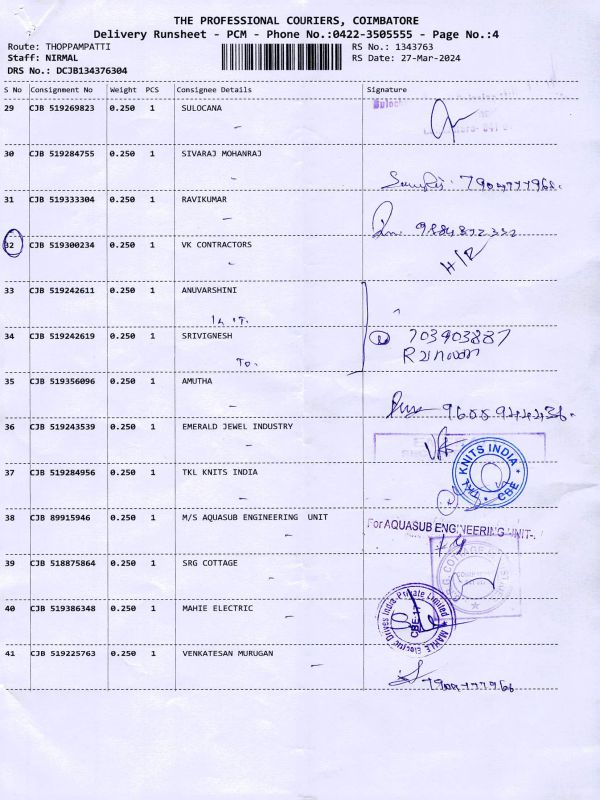 THE PROFESSIONAL COURIERS, COIMBATORE
Delivery Runsheet - PCM - Phone No.:0422-3505555 - Page No.:4
Route: THOPPAMPATTI
RS No.: 1343763
Staff: NIRMAL
RS Date: 27-Mar-2024
DRS No.: DCJB134376304
S No Consignment No Weight PCS Consignee Details Signature
29 CJB 519269823 0.250 1 SULOCANA
30 CJB 519284755 0.250 1 SIVARAJ MOHANRAJ
31 CJB 519333304 0.250 1 RAVIKUMAR
9884872332
32 CJB 519300234 0.250 1 VK CONTRACTORS
33 CJB 519242611 0.250 1 ANUVARSHINI
34 CJB 519242619 0.250 1 SRIVIGNESH
703903887
To.
35 CJB 519356096 0.250 1 AMUTHA
36 CJB 519243539 0.250 1 EMERALD JEWEL INDUSTRY
37 CJB 519284956 0.250 1 TKL KNITS INDIA
KNITS INDIA
CBE
38 CJB 89915946 0.250 1 M/S AQUASUB ENGINEERING UNIT
For AQUASUB ENGINEERING UNIT-
39 CJB 518875864 0.250 1 SRG COTTAGE
40 CJB 519386348 0.250 1 MAHIE ELECTRIC
MAHLE Electric Drives India Private Limited
41 CJB 519225763 0.250 1 VENKATESAN MURUGAN